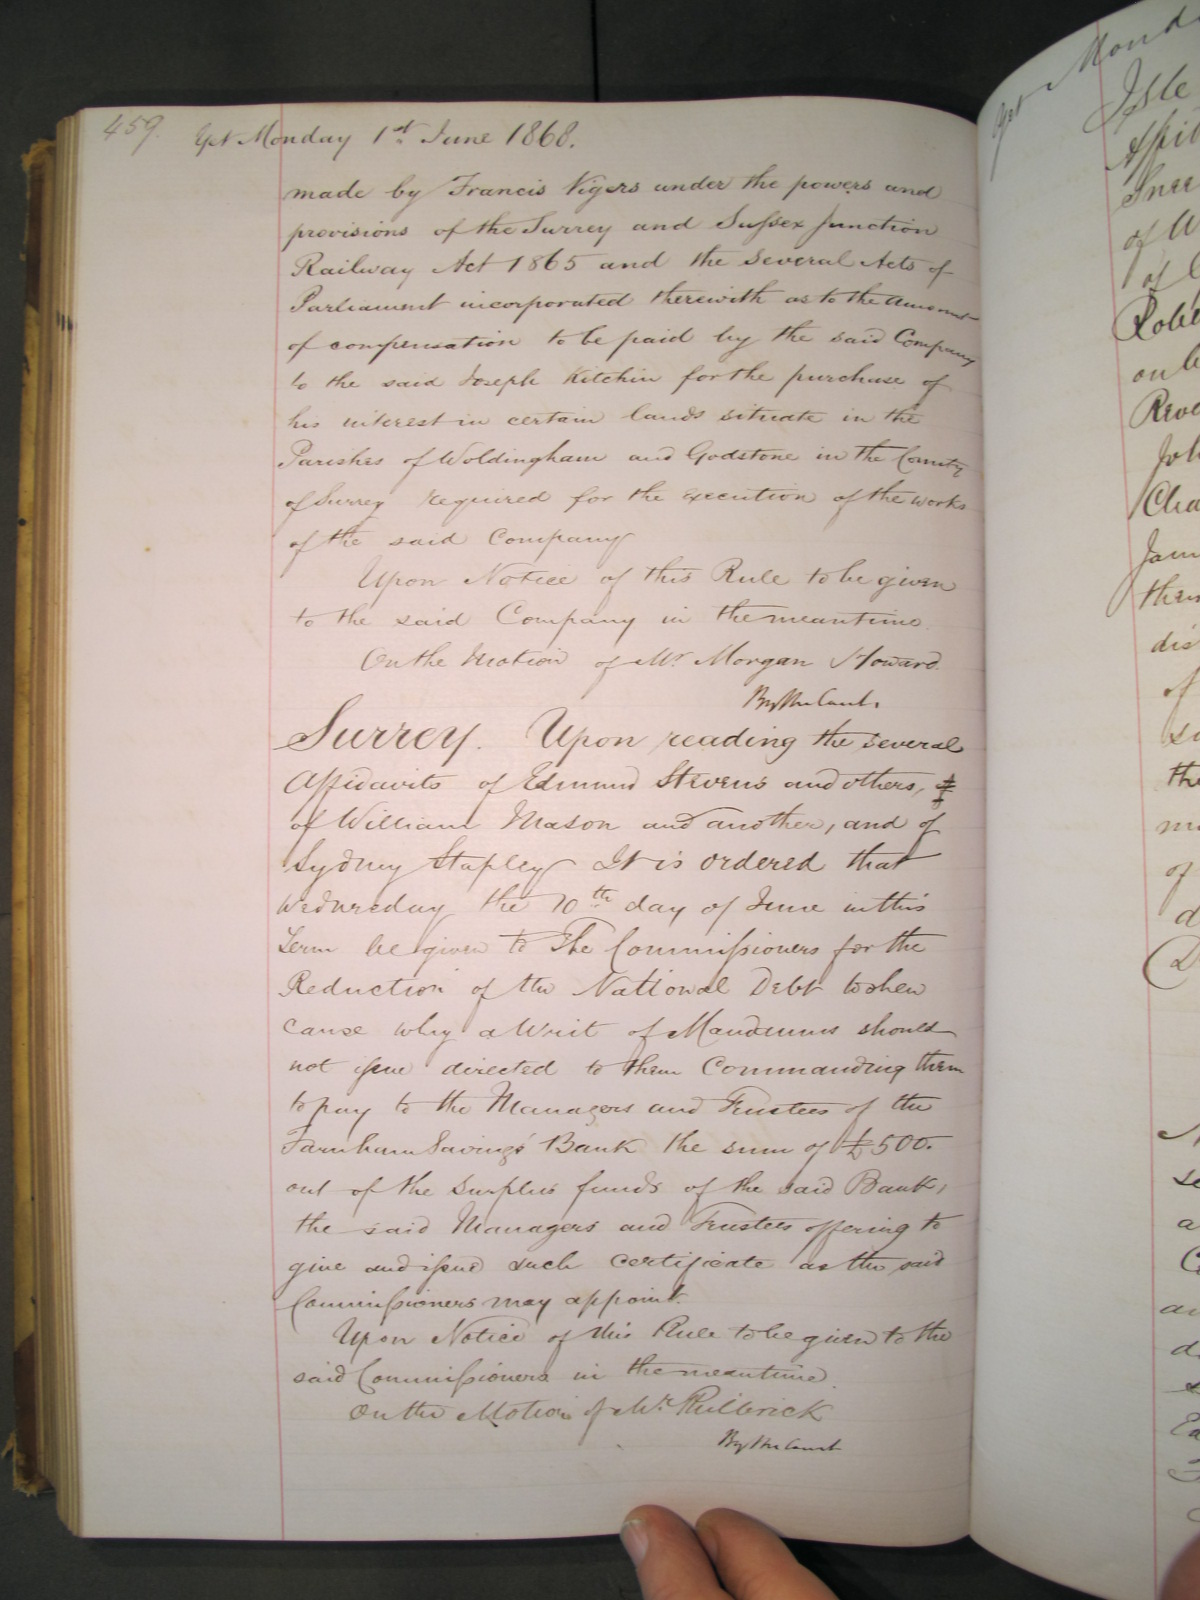 459.
Yet Monday 1st June 1868.
made by Francis Vigers under the powers and
provisions of the Surrey and Sussex Junction
Railway Act 1865 and the several Acts of
Parliament incorporated therewith as to the amount
of compensation to be paid by the said Company
to the said Joseph Kitchin for the purchase of
his interest in certain lands situate in the
Parishes of Woldingham and Godstone in the County
of Surrey required for the execution of the works
of the said Company
Upon Notice of this Rule to be given
to the said Company in the meantime.
On the Motion of Mr. Morgan Howard.
By the Court.
Surrey. Upon reading the several
Affidavits of Edmund Stevens and others,
of William Mason and another, and of
Sydney Stapley It is ordered that
Wednesday the 10th day of June in this
Term be given to The Commissioners for the
Reduction of the National Debt to shew
cause why a Writ of Mandamus should
not issue directed to them Commanding them
to pay to the Managers and Trustees of the
Farnham Savings' Bank the sum of £500.
out of the surplus funds of the said Bank,
the said Managers and Trustees offering to
give and issue such certificate as the said
Commissioners may appoint.
Upon Notice of this Rule to be given to the
said Commissioners in the meantime.
On the Motion of Mr. Philbrick
By the Court
Yet Mond
Isle
Affid
of W
of
Robe
on b
Reve
Joh
Cha
Jam
them
dis
of
the
of
d